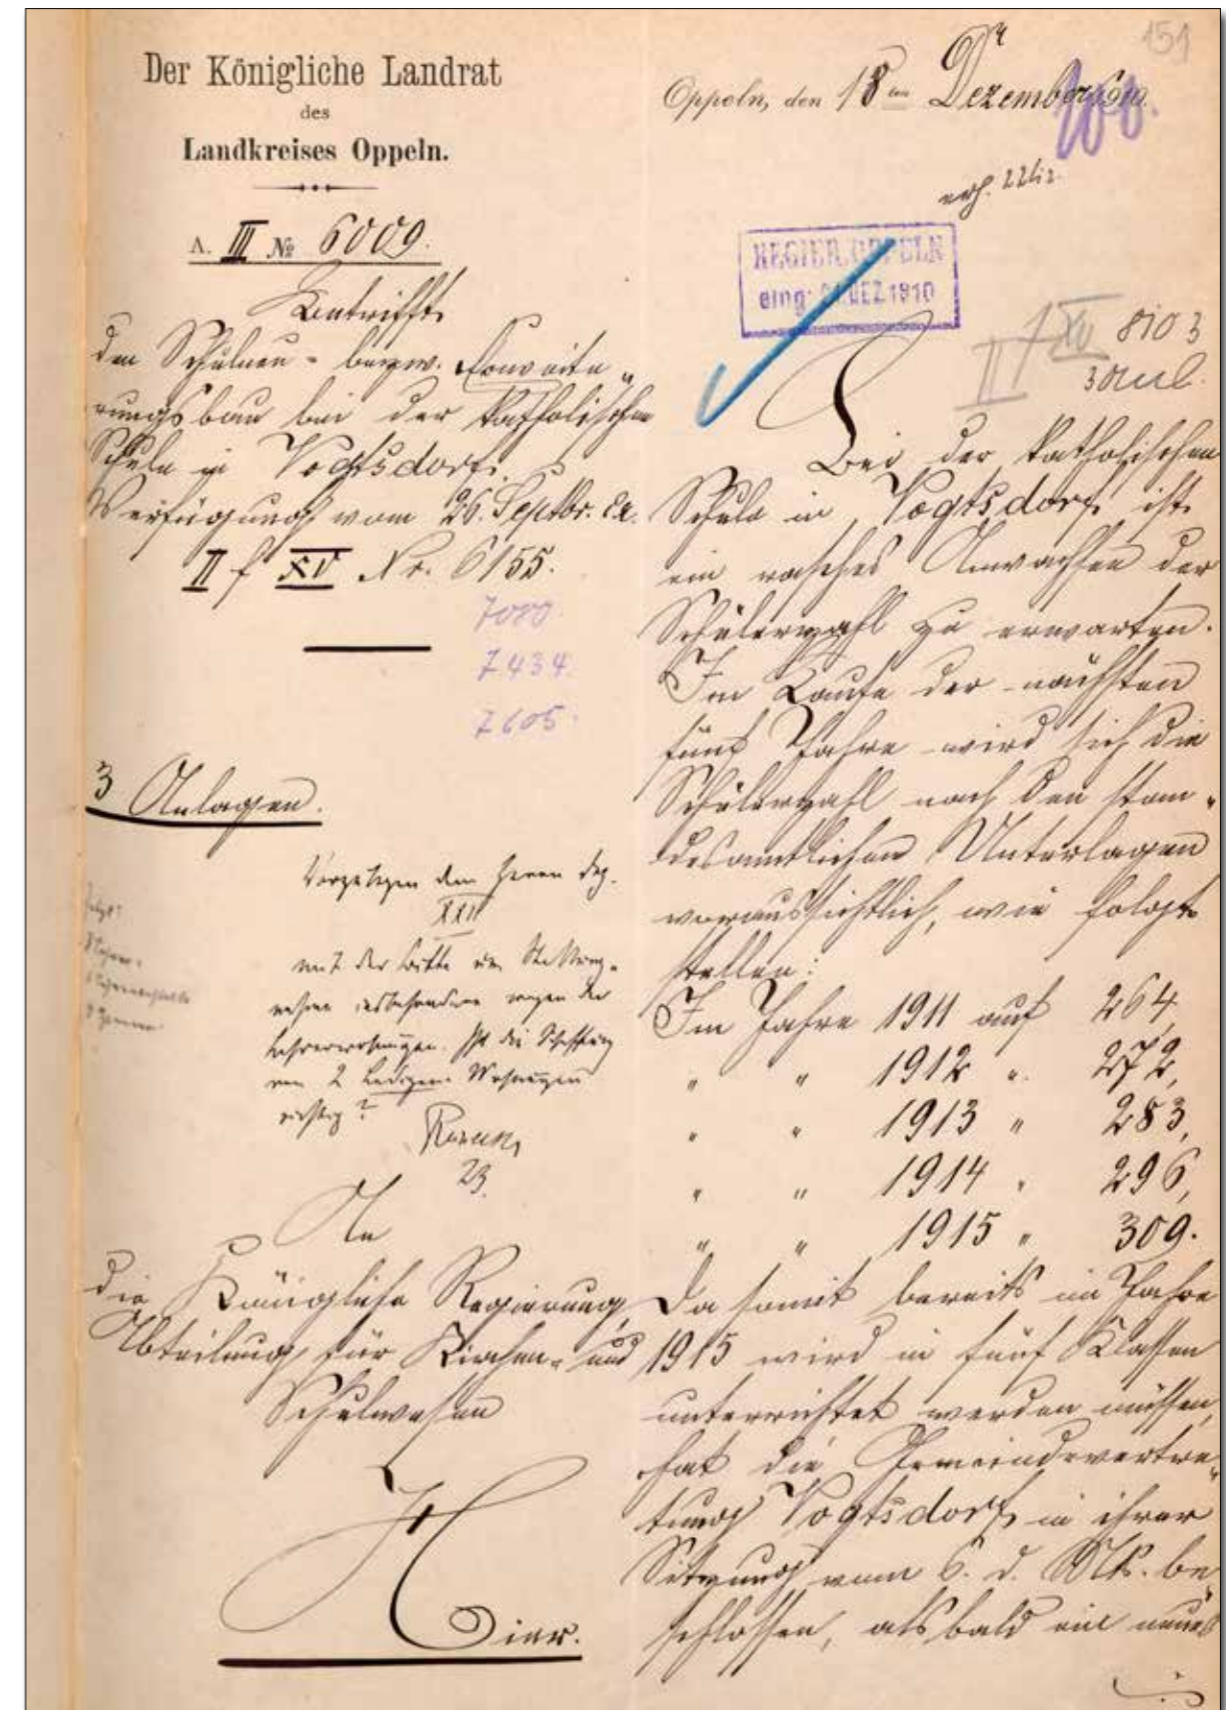 151
Der Königliche Landrat
des
Landkreises Oppeln.
Oppeln, den 18ten Dezember 1910.
A. III № 6009.
REGIER. OPPELN
eing: DEZ 1910
Betrifft
den Schulneu- bezw. Erweite-
rungsbau bei der katholischen
Schule in Vogtsdorf.
Verfügung vom 26. Septbr. cr.
II f XV Nr. 6155.
7080.
7434.
7605.
3 Anlagen.
Vorzulegen dem Herrn Dez.
XXII
mit der Bitte um Stellung-
nahme insbesondere wegen der
Lehrerwohnungen. Ist die Schaffung
von 2 ledigen Wohnungen
richtig?
23.
An
die Königliche Regierung,
Abteilung für Kirchen- und
Schulwesen
Hier.
II f XV 8103
Bei der katholischen
Schule in Vogtsdorf ist
ein rasches Anwachsen der
Schülerzahl zu erwarten.
Im Laufe der nächsten
fünf Jahre wird sich die
Schülerzahl nach den stan-
desamtlichen Unterlagen
voraussichtlich, wie folgt
stellen:
Im Jahre 1911 auf 264,
" " 1912 " 272,
" " 1913 " 283,
" " 1914 " 296,
" " 1915 " 309.
Da somit bereits im Jahre
1915 wird in fünf Klassen
unterrichtet werden müssen,
hat die Gemeindevertre-
tung Vogtsdorf in ihrer
Sitzung vom 6. d. Mts. be-
schlossen, alsbald ein neues